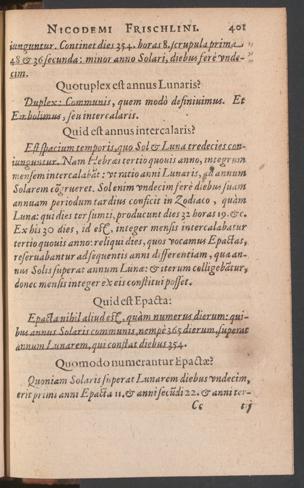 NICODEMI FRISCHLINI. 401
iunguntur. Continet dies 354. horas 8. scrupula prima
48 & 36 secunda: minor anno Solari, diebus ferè vnde-
cim.
Quotuplex est annus Lunaris?
Duplex: Communis, quem modò definiuimus. Et
Embolimus, seu intercalaris.
Quid est annus intercalaris?
Est spacium temporis, quo Sol & Luna tredecies con-
iunguntur. Nam Hebræi tertio quouis anno, integrum
mensem intercalabāt: vt ratio anni Lunaris, ad annum
Solarem cōgrueret. Sol enim vndecim ferè diebus suam
annuam periodum tardius conficit in Zodiaco, quàm
Luna: qui dies ter sumti, producunt dies 32 horas 19. &c.
Ex his 30 dies, id est, integer mensis intercalabatur
tertio quouis anno: reliqui dies, quos vocamus Epactas,
reseruabantur ad sequentis anni differentiam, qua an-
nus Solis superat annum Lunæ: & iterum colligebātur,
donec mensis integer ex eis constitui posset.
Quid est Epacta:
Epacta nihil aliud est, quàm numerus dierum: qui-
bus annus Solaris communis, nempè 365 dierum, superat
annum Lunarem, qui constat diebus 354.
Quomodo numerantur Epactæ?
Quoniam Solaris superat Lunarem diebus vndecim,
erit primi anni Epacta 11. & anni secūdi 22. & anni ter-
Cc tij